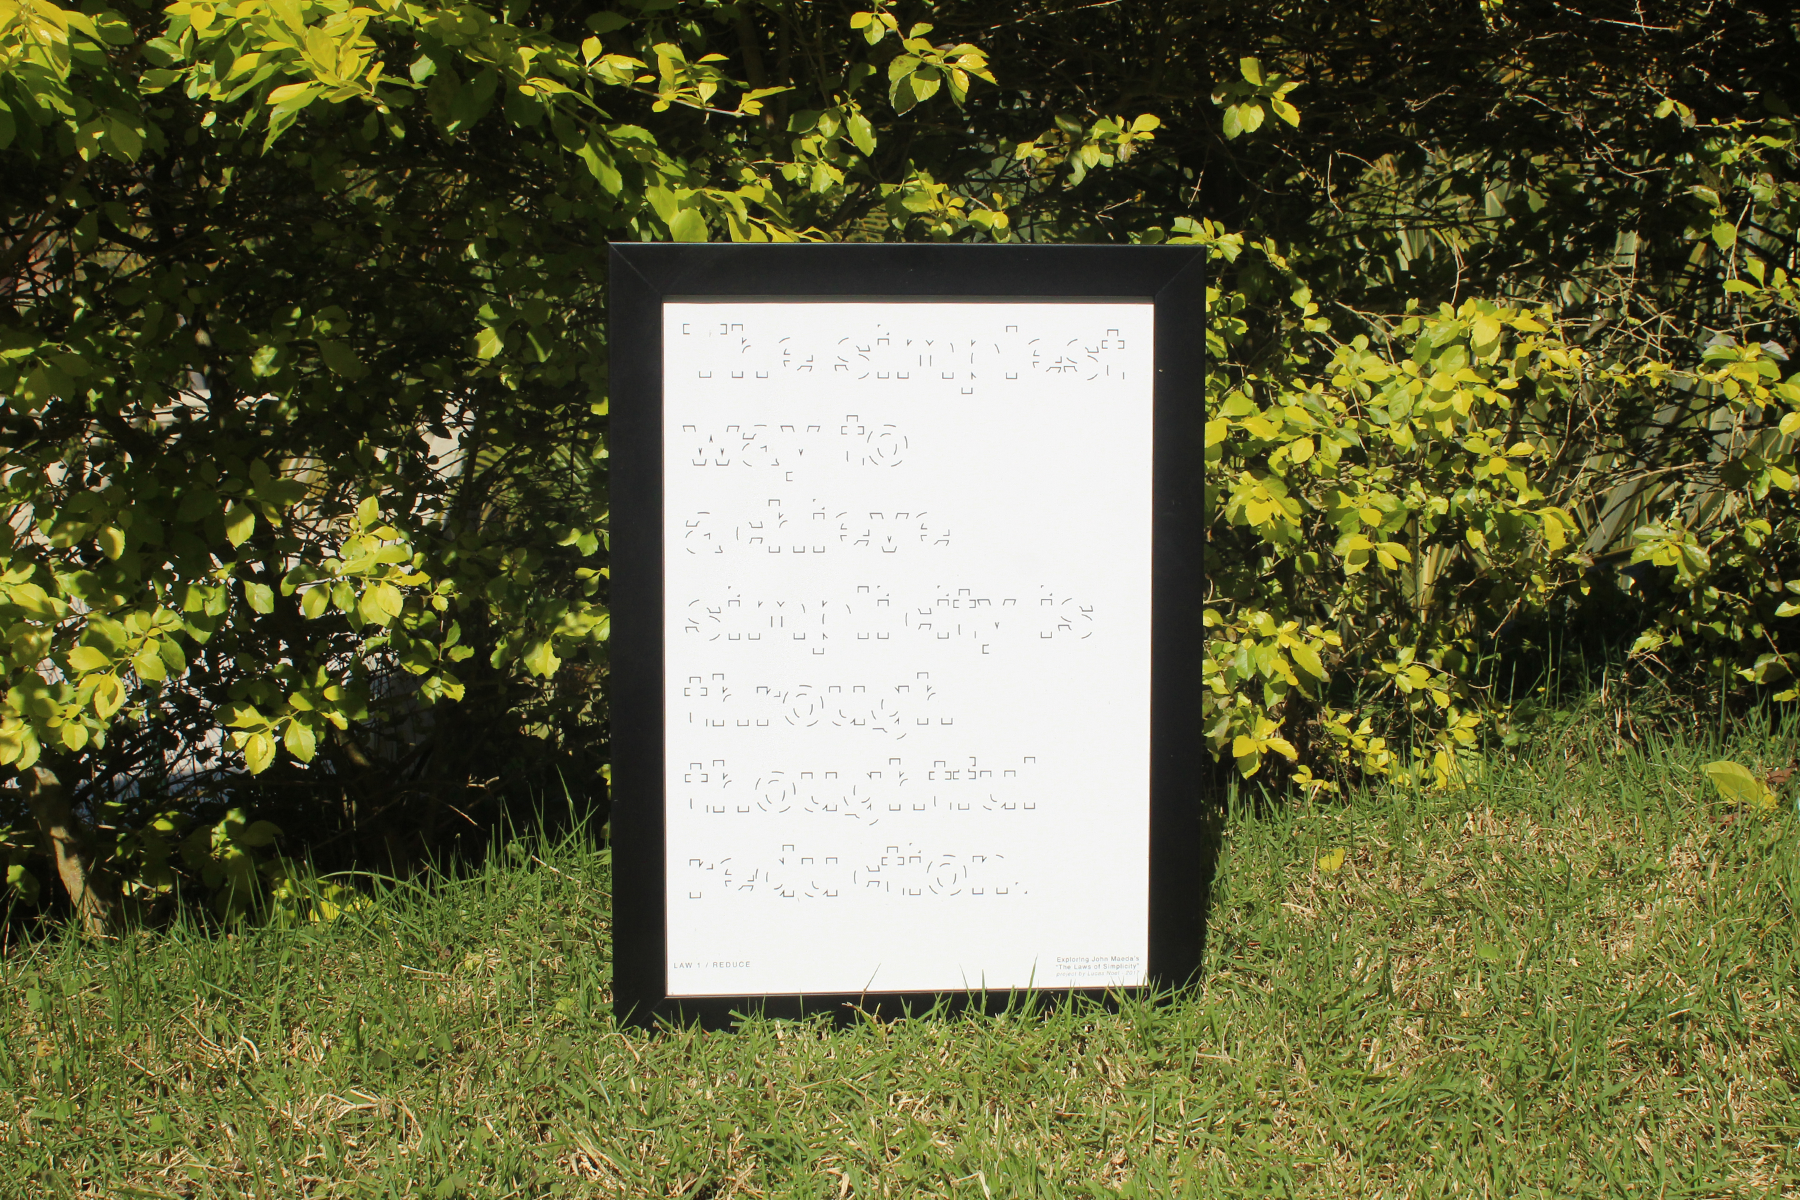 The simplest
way to
achieve
simplicity is
through
thoughtful
reduction.
LAW 1 / REDUCE
Exploring John Maeda's
"The Laws of Simplicity"
project by Lucas